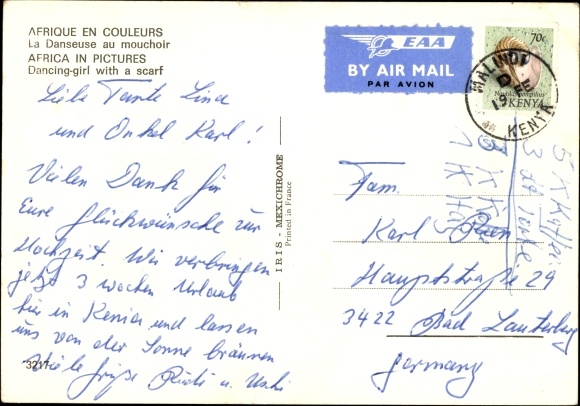 AFRIQUE EN COULEURS
La Danseuse au mouchoir
AFRICA IN PICTURES
Dancing-girl with a scarf
Liebe Tante Lina
und Onkel Karl!
Vielen Dank für
Eure Glückwünsche zur
Hochzeit. Wir verbringen
jetzt 3 Wochen Urlaub
hier in Kenia und lassen
uns von der Sonne bräunen
Viele Grüße Rudi u. Ushi
3217
IRIS - MEXICHROME
Printed in France
EAA
BY AIR MAIL
PAR AVION
70c
Nautilus pompilius
KENYA
MALINDI
KENYA
Fam.
Karl
Hauptstraße 29
3422 Bad Lauterberg
Germany